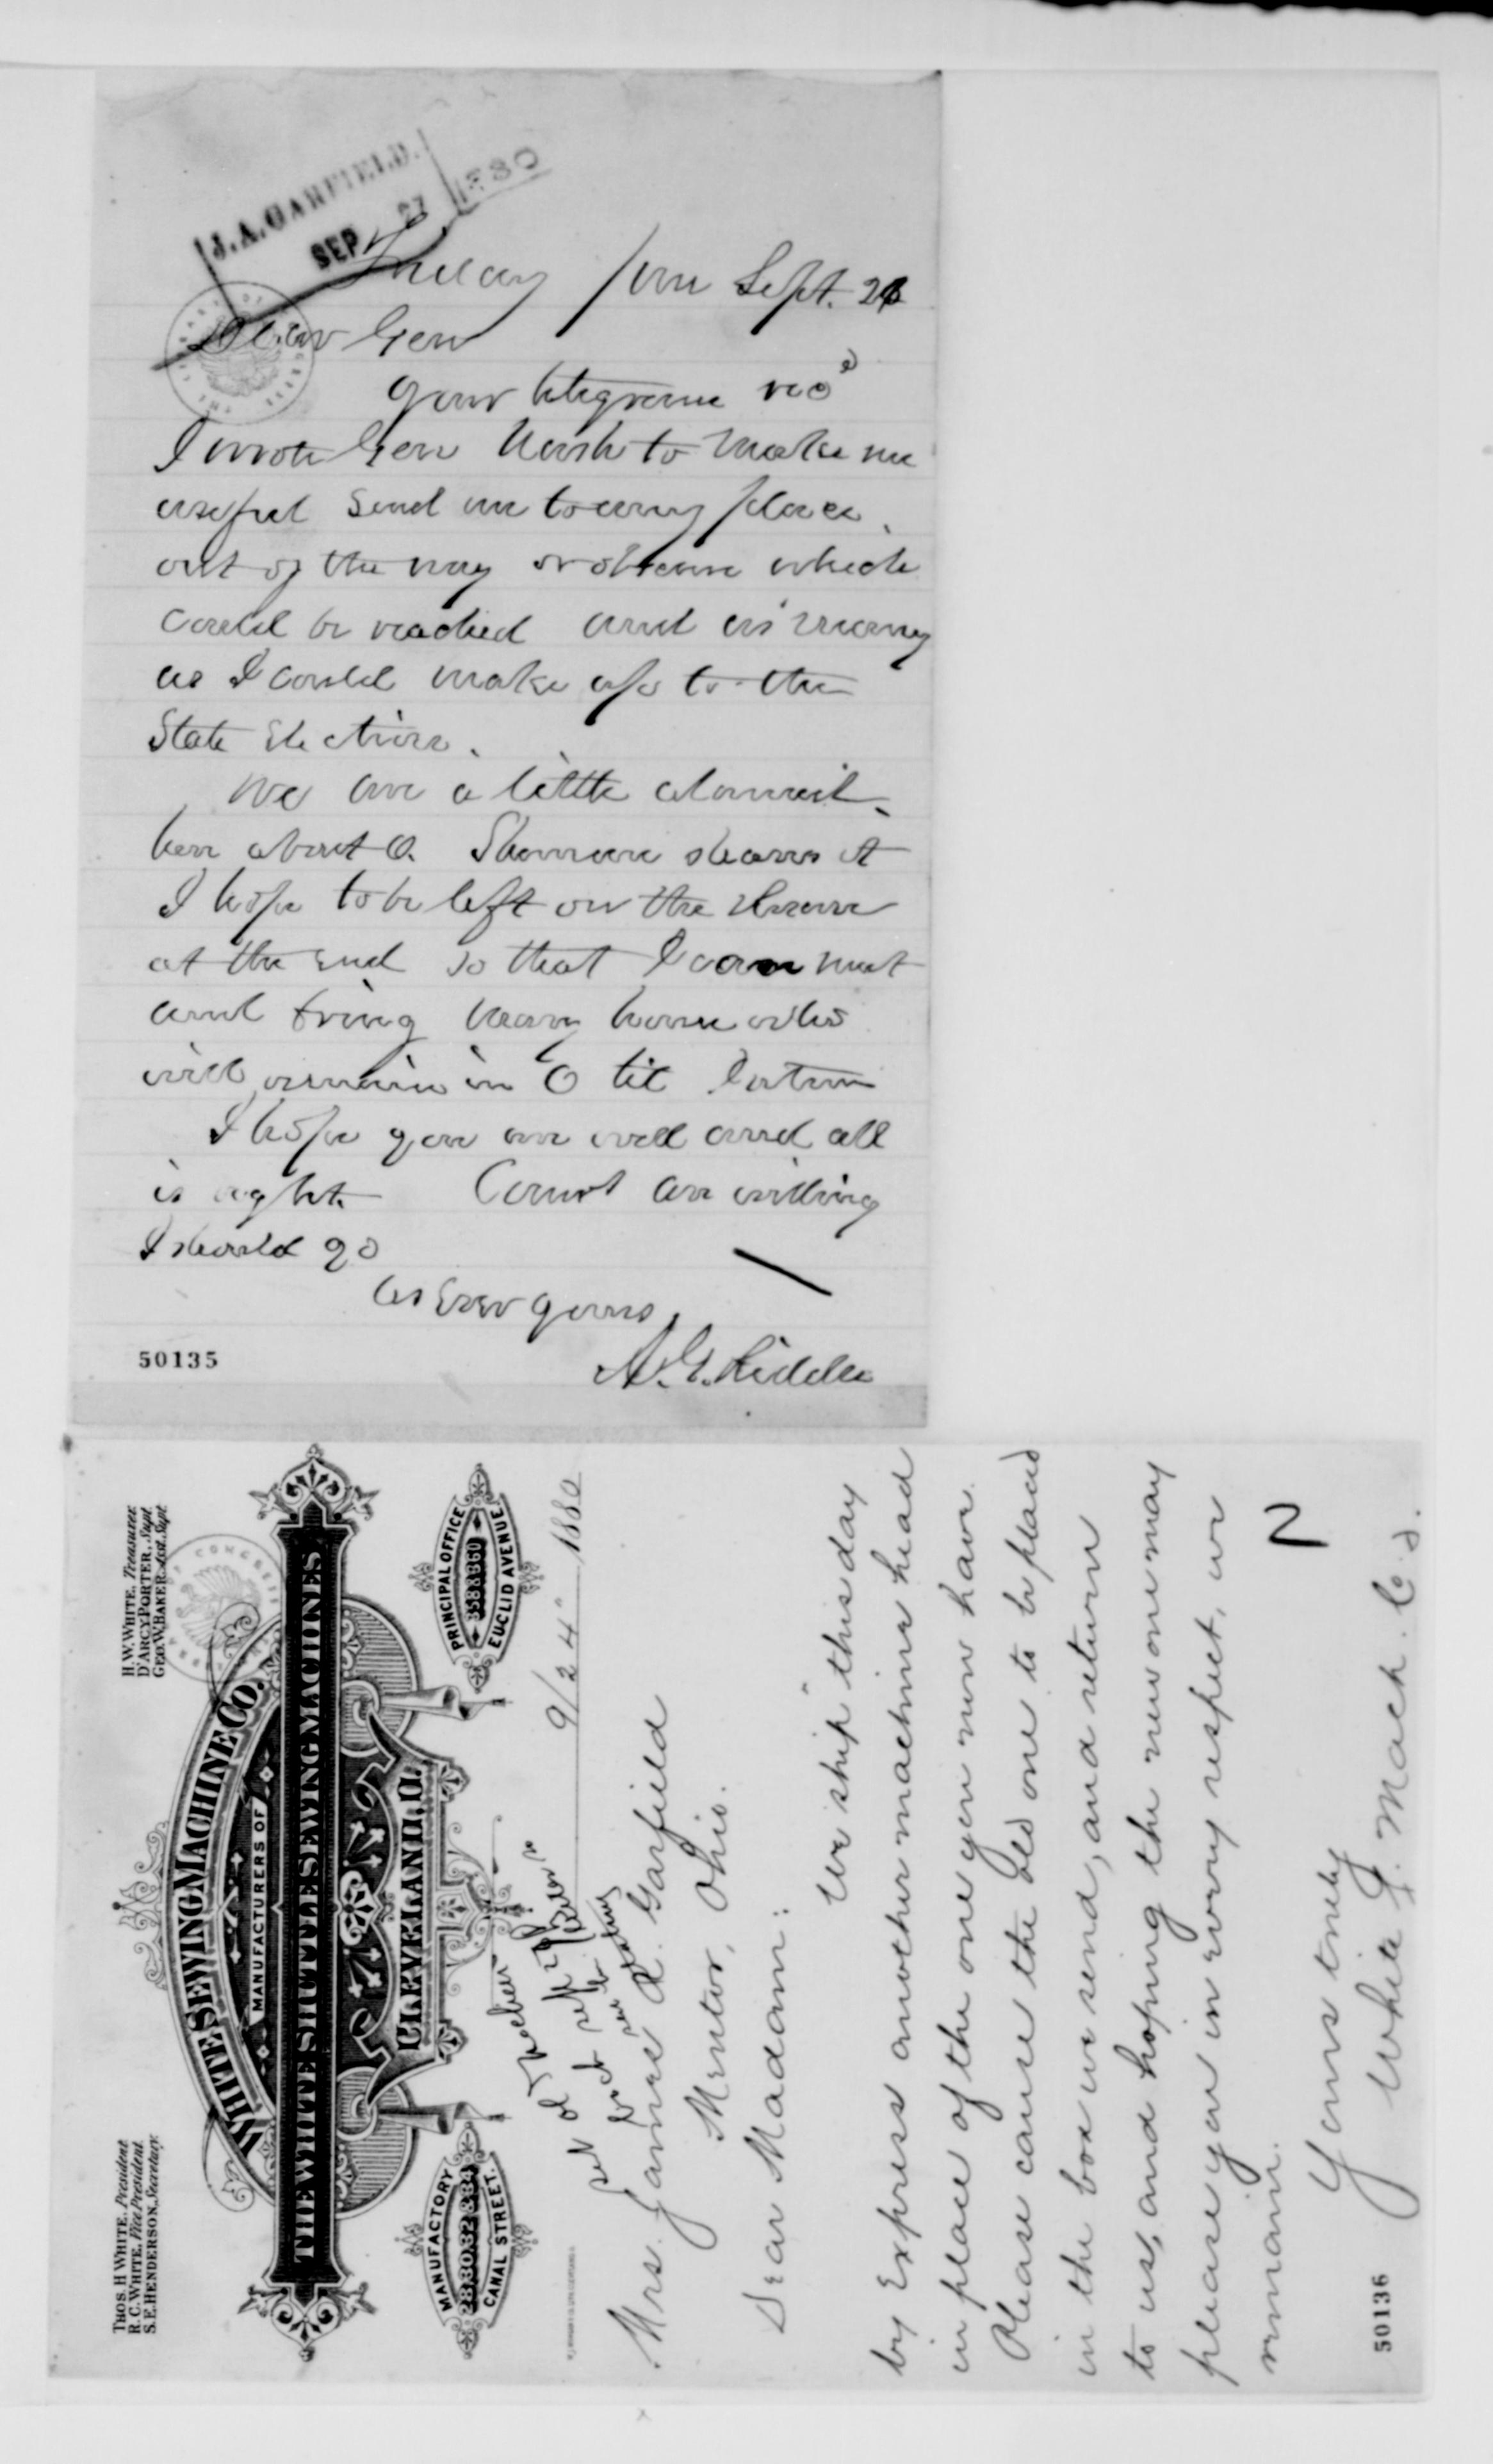 J.A. GARFIELD.
SEP 27
1880
Friday 1 pm Sept. 24
Dear Gen
Your telegram recd
I wrote Gen to make me
useful send me to any place
out of the way or obscure which
could be reached and as many
as I could make up to the
State Election.
We are a little
here about O. Sherman shares it
I hope to be left on the
at the end so that I can meet
and bring home who
will remain in O til I return
I hope you are well and all
is right. Court are willing
I should go
As ever yours
A.G. Riddle
50135
THOS. H. WHITE, President.
R.C. WHITE, Vice President.
S.E. HENDERSON, Secretary.
H.W. WHITE, Treasurer.
D'ARCY PORTER, Supt.
GEO. W. BAKER, Asst. Supt.
WHITE SEWING MACHINE CO.
MANUFACTURERS OF
THE WHITE SHUTTLE SEWING MACHINES
CLEVELAND, O.
MANUFACTORY
28,30,32 & 34
CANAL STREET.
PRINCIPAL OFFICE
358 & 360
EUCLID AVENUE
9/24" 1880
back Sept 28
Mrs. James A. Garfield
Mentor, Ohio.
Dear Madam:
We ship this day
by Express another machine head
in place of the one you now have.
Please cause the old one to be placed
in the box we send, and return
to us, and hoping the new one may
please you in every respect, we
remain.
Yours truly
White S. Mach. Co.
2
50136